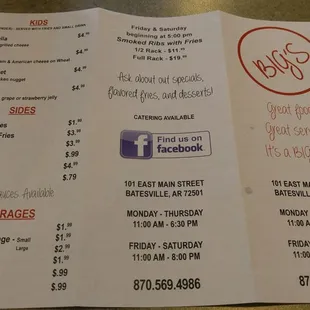 KIDS
$4.
grilled chaps
$4.
& American cheese on Wheat
$4.
ken nugget
$4.
grape or strawberry jelly
SIDES
$1.
Fries
$3.
$3.
$.99
$4.
$.79
Available
RAGES
$1.
nge - Small
$1.
Large
$2.
$1.
$.99
$.99
Friday & Saturday
beginning at 5:00 pm
Smoked Ribs with Fries
1/2 Rack - $11.
Full Rack - $19.
Ask about out specials,
flavored fries, and desserts!
CATERING AVAILABLE
f Find us on
facebook
101 EAST MAIN STREET
BATESVILLE, AR 72501
MONDAY - THURSDAY
11:00 AM - 6:30 PM
FRIDAY - SATURDAY
11:00 AM - 8:00 PM
870.569.4986
BIG'S
Great foo
Great ser
It's a BIG
101 EAST MAI
BATESVILLE,
MONDAY - TH
11:00 AM - 6
FRIDAY - SA
11:00 AM - 8
870.56